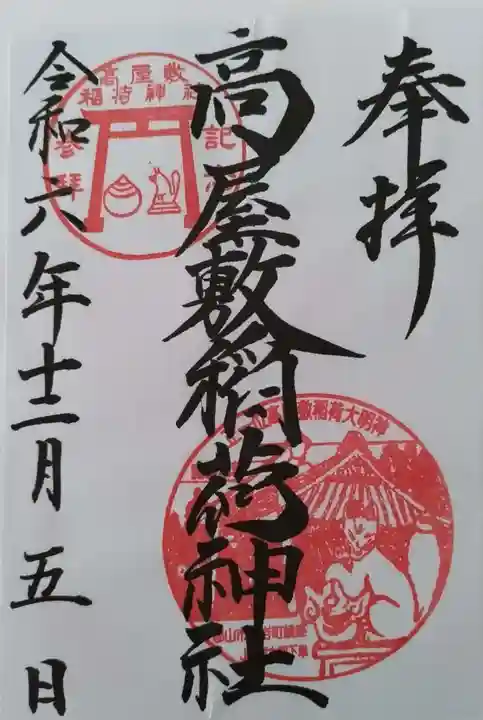 奉拝
高屋敷稲荷神社
令和六年十二月五日
高屋敷
稲荷神社
参拝
記念
高屋敷稲荷大明神